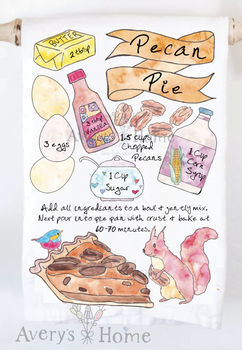 BUTTER
2 tbsp
Pecan
Pie
Vanilla
3 eggs
1.5 cups
Chopped
Pecans
1 Cup
Corn
Syrup
1 Cup
Sugar
Add all ingredients to a bowl & gently mix.
Next pour into pie pan with crust & bake at
60-70 minutes.
Avery's Home